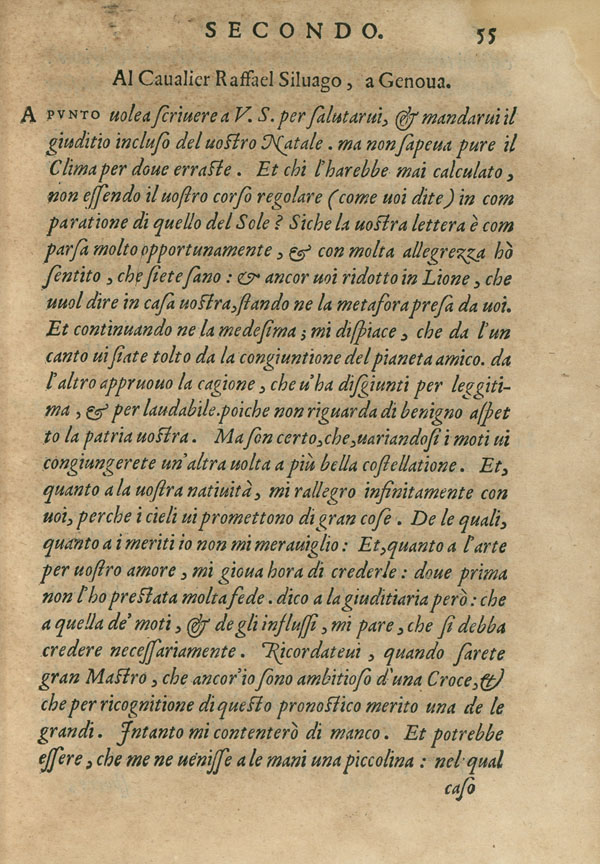 SECONDO. 55
Al Caualier Raffael Siluago, a Genoua.
A PVNTO uolea scriuere a V. S. per salutarui, & mandarui il
giuditio incluso del uostro Natale. ma non sapeua pure il
Clima per doue erraste. Et chi l'harebbe mai calculato,
non essendo il uostro corso regolare (come uoi dite) in com
paratione di quello del Sole? Siche la uostra lettera è com
parsa molto opportunamente, & con molta allegrezza hò
sentito, che siete sano: & ancor uoi ridotto in Lione, che
uuol dire in casa uostra, stando ne la metafora presa da uoi.
Et continuando ne la medesima; mi dispiace, che da l'un
canto ui siate tolto da la congiuntione del pianeta amico. da
l'altro appruouo la cagione, che u'ha disgiunti per leggiti-
ma, & per laudabile. poiche non riguarda di benigno aspet
to la patria uostra. Ma son certo, che, uariandosi i moti ui
congiungerete un'altra uolta a più bella costellatione. Et,
quanto a la uostra natiuità, mi rallegro infinitamente con
uoi, perche i cieli ui promettono di gran cose. De le quali,
quanto a i meriti io non mi merauiglio: Et, quanto a l'arte
per uostro amore, mi gioua hora di crederle: doue prima
non l'ho prestata molta fede. dico a la giuditiaria però: che
a quella de' moti, & de gli influssi, mi pare, che si debba
credere necessariamente. Ricordateui, quando sarete
gran Mastro, che ancor'io sono ambitioso d'una Croce, &
che per ricognitione di questo pronostico merito una de le
grandi. Intanto mi contenterò di manco. Et potrebbe
essere, che me ne uenisse a le mani una piccolina: nel qual
caso